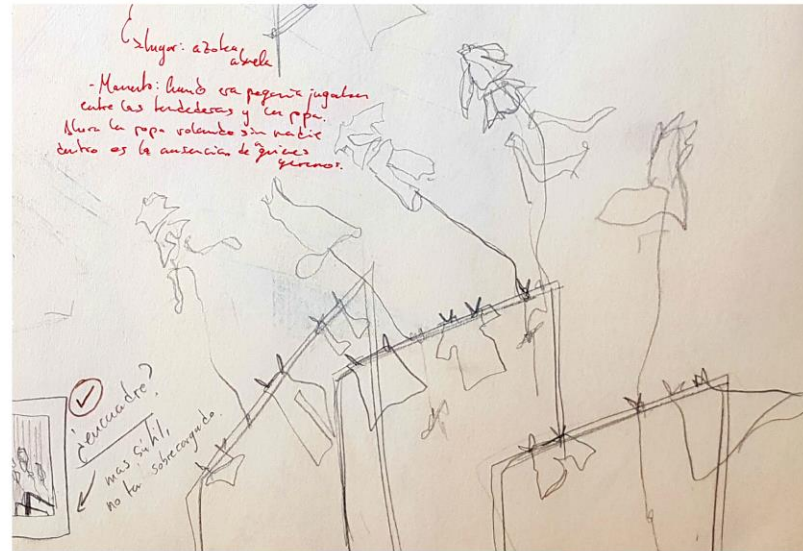 lugar: azotea
abuela
- Momento: Cuando era pequeña jugaban
entre las tendederas y la ropa.
Ahora la ropa volando sin nadie
dentro es la ausencia de quienes
queremos.
¿encuadre?
mas sútil,
no tan sobrecargado.